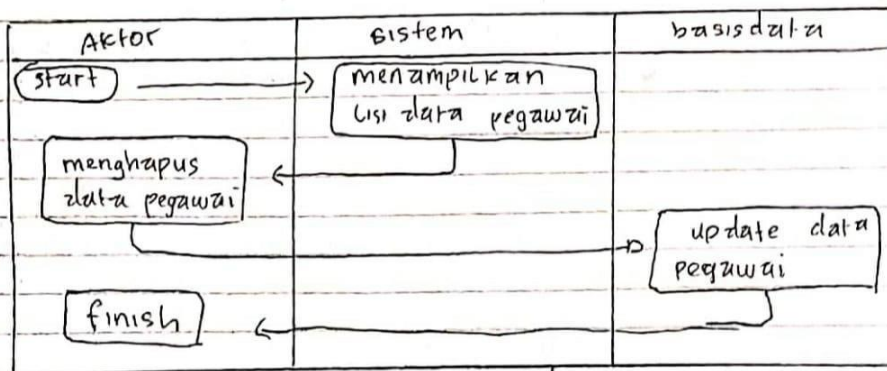 Aktor
sistem
basisdata
start
menampilkan
lisi data pegawai
menghapus
data pegawai
update data
pegawai
finish